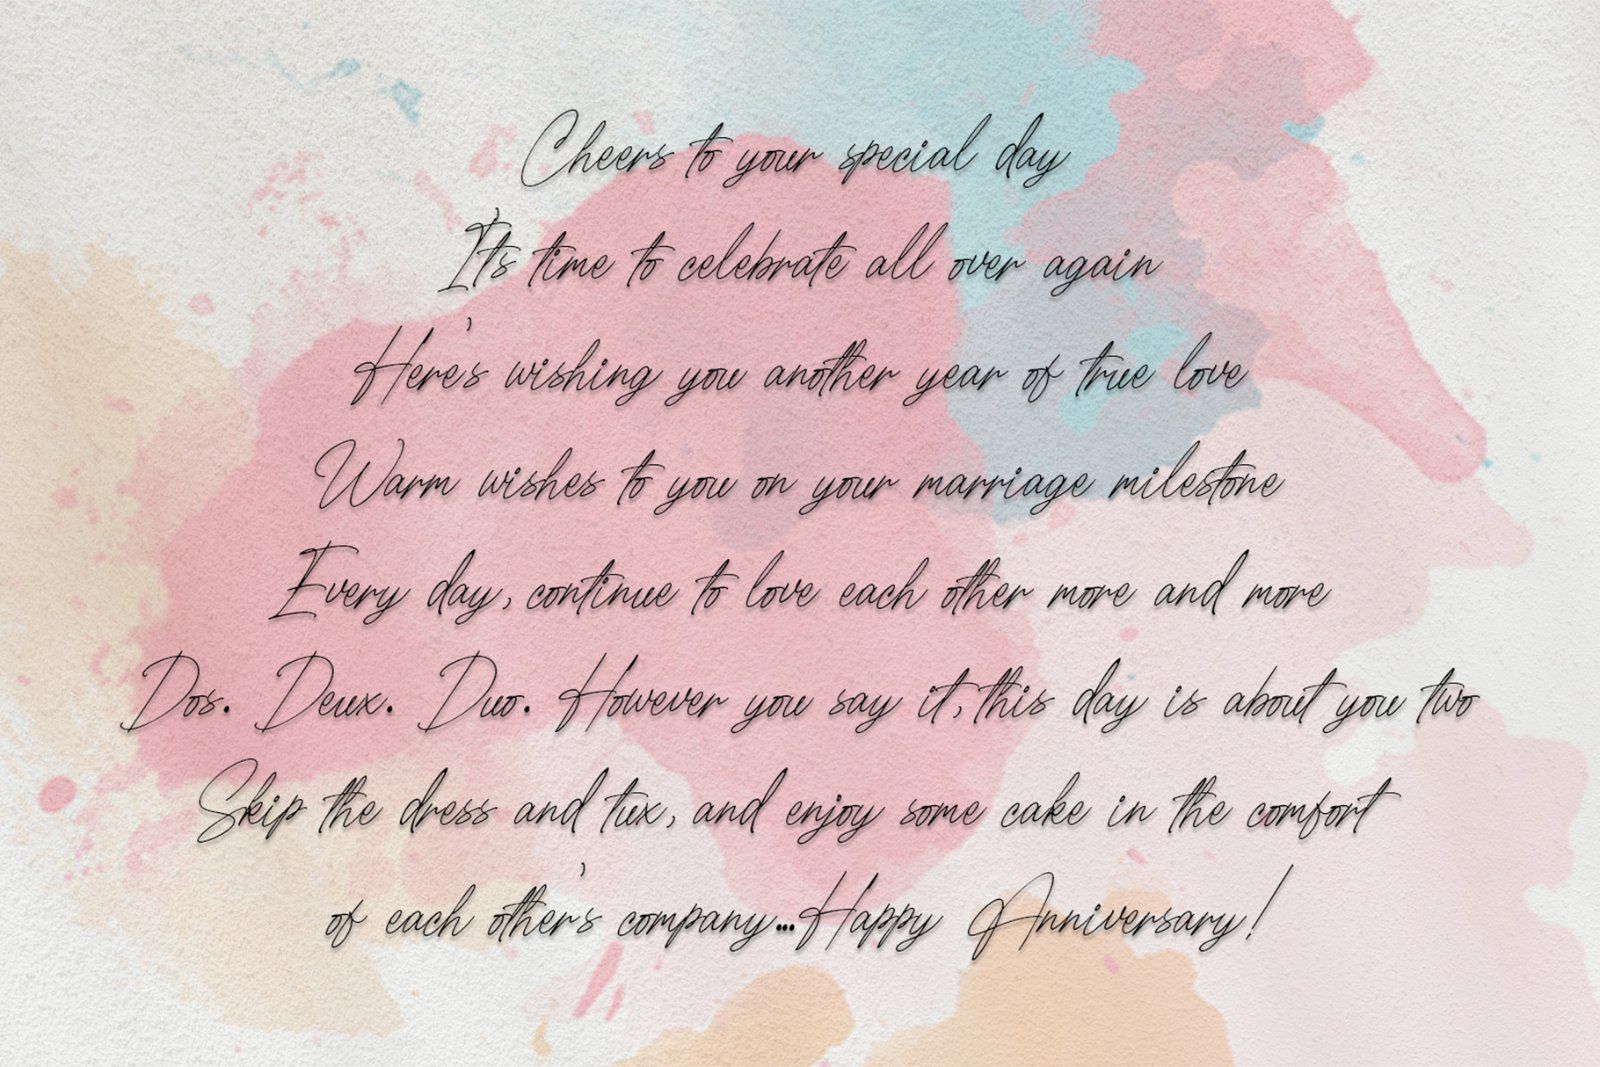 Cheers to your special day
It's time to celebrate all over again
Here's wishing you another year of true love
Warm wishes to you on your marriage milestone
Every day, continue to love each other more and more
Dos. Deux. Duo. However you say it, this day is about you two
Skip the dress and tux, and enjoy some cake in the comfort
of each other's company...Happy Anniversary!